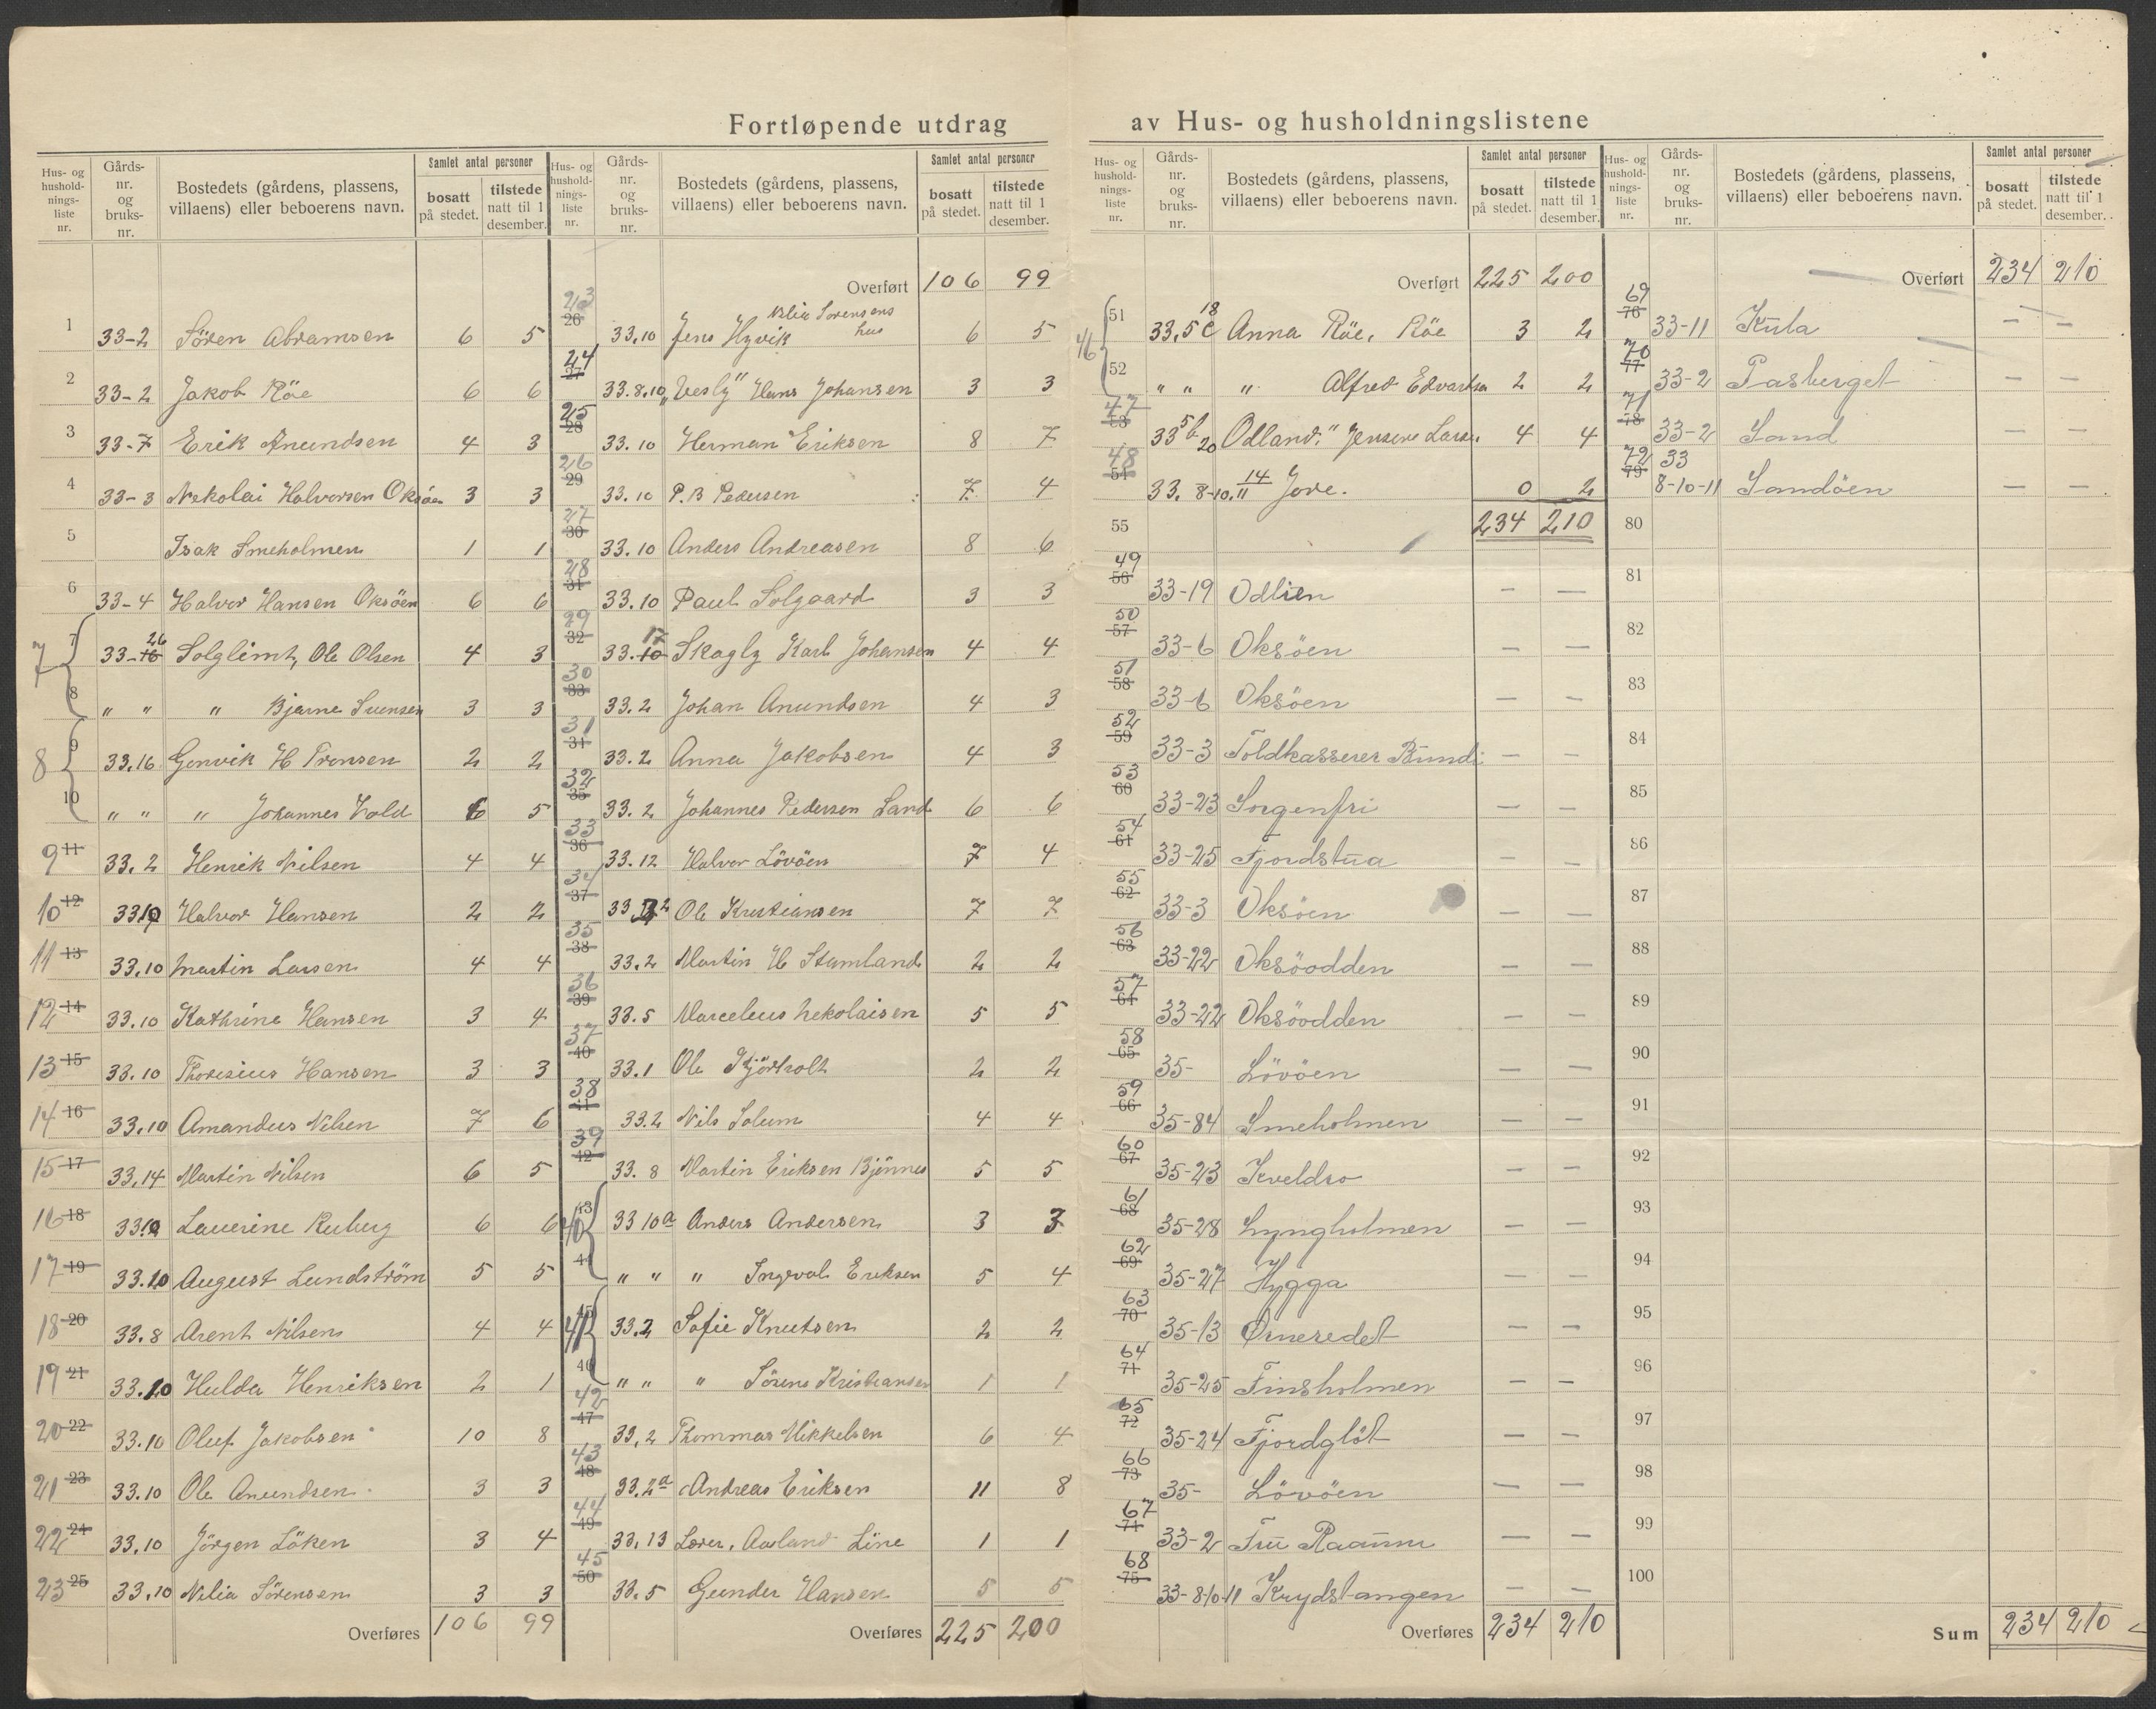 Fortløpende utdrag av Hus- og husholdningslistene
Hus- og hushold-nings-liste nr. | Gårds-nr. og bruks-nr. | Bostedets (gårdens, plassens, villaens) eller beboerens navn. | Samlet antal personer: bosatt på stedet. | tilstede natt til 1 desember.
1 33-2 Sören Abramsen 6 5
2 33-2 Jakob Röe 6 6
3 33-7 Erik Anundsen 4 3
4 33-3 Nekolai Halvorsen Oksöen 3 3
5 Isak Smeholmen 1 1
6 33-4 Halvor Hansen Oksöen 6 6
7 7 33-16 26 Solglimt, Ole Olsen 4 3
8 " " " Bjarne Svensen 3 3
8 9 33.16 Genvik H Trensen 2 2
10 " " " Johannes Vold 6 5
9 11 33.2 Henrik Nilsen 4 4
10 12 33 10 Halvor Hansen 2 2
11 13 33.10 Martin Larsen 4 4
12 14 33.10 Kathrine Hansen 3 4
13 15 33.10 Thoresius Hansen 3 3
14 16 33.10 Amandus Nilsen 7 6
15 17 33.14 Martin Nilsen 6 5
16 18 33.10 Laurine Ruberg 6 6
17 19 33.10 August Lundström 5 5
18 20 33.8 Arent Nilsen 4 4
19 21 33.10 Hulda Henriksen 2 1
20 22 33.10 Oluf Jakobsen 10 8
21 23 33.10 Ole Anundsen 3 3
22 24 33.10 Jörgen Löken 3 4
23 25 33.10 Nilia Sörensen 3 3
Overføres 106 99
Hus- og hushold-nings-liste nr. | Gårds-nr. og bruks-nr. | Bostedets (gårdens, plassens, villaens) eller beboerens navn. | Samlet antal personer: bosatt på stedet. | tilstede natt til 1 desember.
Overført 106 99
23 26 33.10 Jens Hyvik Nlia Sorensens hus 6 5
24 27 33.8.10 "Vesly" Hans Johansen 3 3
25 28 33.10 Herman Eriksen 8 7
26 29 33.10 P.B Pedersen 7 4
27 30 33.10 Anders Andreasen 8 6
28 31 33.10 Paul Solgaard 3 3
29 32 33.10 17 Skogly Karl Johansen 4 4
30 33 33.2 Johan Anundsen 4 3
31 34 33.2 Anna Jakobsen 4 3
32 35 33.2 Johannes Pedersen Sand 6 6
33 36 33.12 Halvor Lövöen 7 4
34 37 33 2 Ole Kristiansen 7 7
35 38 33.2 Martin H Stamland 2 2
36 39 33.5 Marcelius Nekolaisen 5 5
37 40 33.1 Ole Kjörholt 2 2
38 41 33.2 Nils Solum 4 4
39 42 33.8 Martin Eriksen Bjönnes 5 5
40 43 33 10a Anders Andersen 3 3
44 " " " Ingvald Eriksen 5 4
41 45 33.2 Sofie Knutsen 2 2
46 " " " Sörens Kristiansen 1 1
42 47 33.2 Thommas Mikkelsen 6 4
43 48 33.2a Andreas Eriksen 11 8
44 49 33.13 Lærer. Aasland Line 1 1
45 50 33.5 Gunder Hansen 5 5
Overføres 225 200
Hus- og hushold-nings-liste nr. | Gårds-nr. og bruks-nr. | Bostedets (gårdens, plassens, villaens) eller beboerens navn. | Samlet antal personer: bosatt på stedet. | tilstede natt til 1 desember.
Overført 225 200
46 51 33.5c 18 Anna Röe, Röe 3 2
52 " " " Alfred Edvartsen 2 2
47 53 33 5b 20 Odland." Jensine Larsen 4 4
48 54 33. 8-10.11 14 Jore. 0 2
55 234 210
49 56 33-19 Odlien — —
50 57 33-6 Oksöen — —
51 58 33-6 Oksöen — —
52 59 33-3 Toldkasserer Bundi — —
53 60 33-23 Sorgenfri — —
54 61 33-25 Fjordstua — —
55 62 33-3 Oksöen — —
56 63 33-22 Oksöodden — —
57 64 33-22 Oksöodden — —
58 65 35- Lövöen — —
59 66 35-84 Smeholmen — —
60 67 35-23 Kveldro — —
61 68 35-28 Lyngholmen — —
62 69 35-27 Hygga — —
63 70 35-13 Örneredet — —
64 71 35-25 Finsholmen — —
65 72 35-24 Fjordglöt — —
66 73 35- Lövöen — —
67 74 33-2 Fru Raaum — —
68 75 33-8-10-11 Krydstangen — —
Overføres 234 210
Hus- og hushold-nings-liste nr. | Gårds-nr. og bruks-nr. | Bostedets (gårdens, plassens, villaens) eller beboerens navn. | Samlet antal personer: bosatt på stedet. | tilstede natt til 1 desember.
Overført 234 210
69 76 33-11 Kula — —
70 77 33-2 Pasberget — —
71 78 33-2 Sand — —
72 79 33 8-10-11 Sandöen — —
80
81
82
83
84
85
86
87
88
89
90
91
92
93
94
95
96
97
98
99
100
Sum 234 210